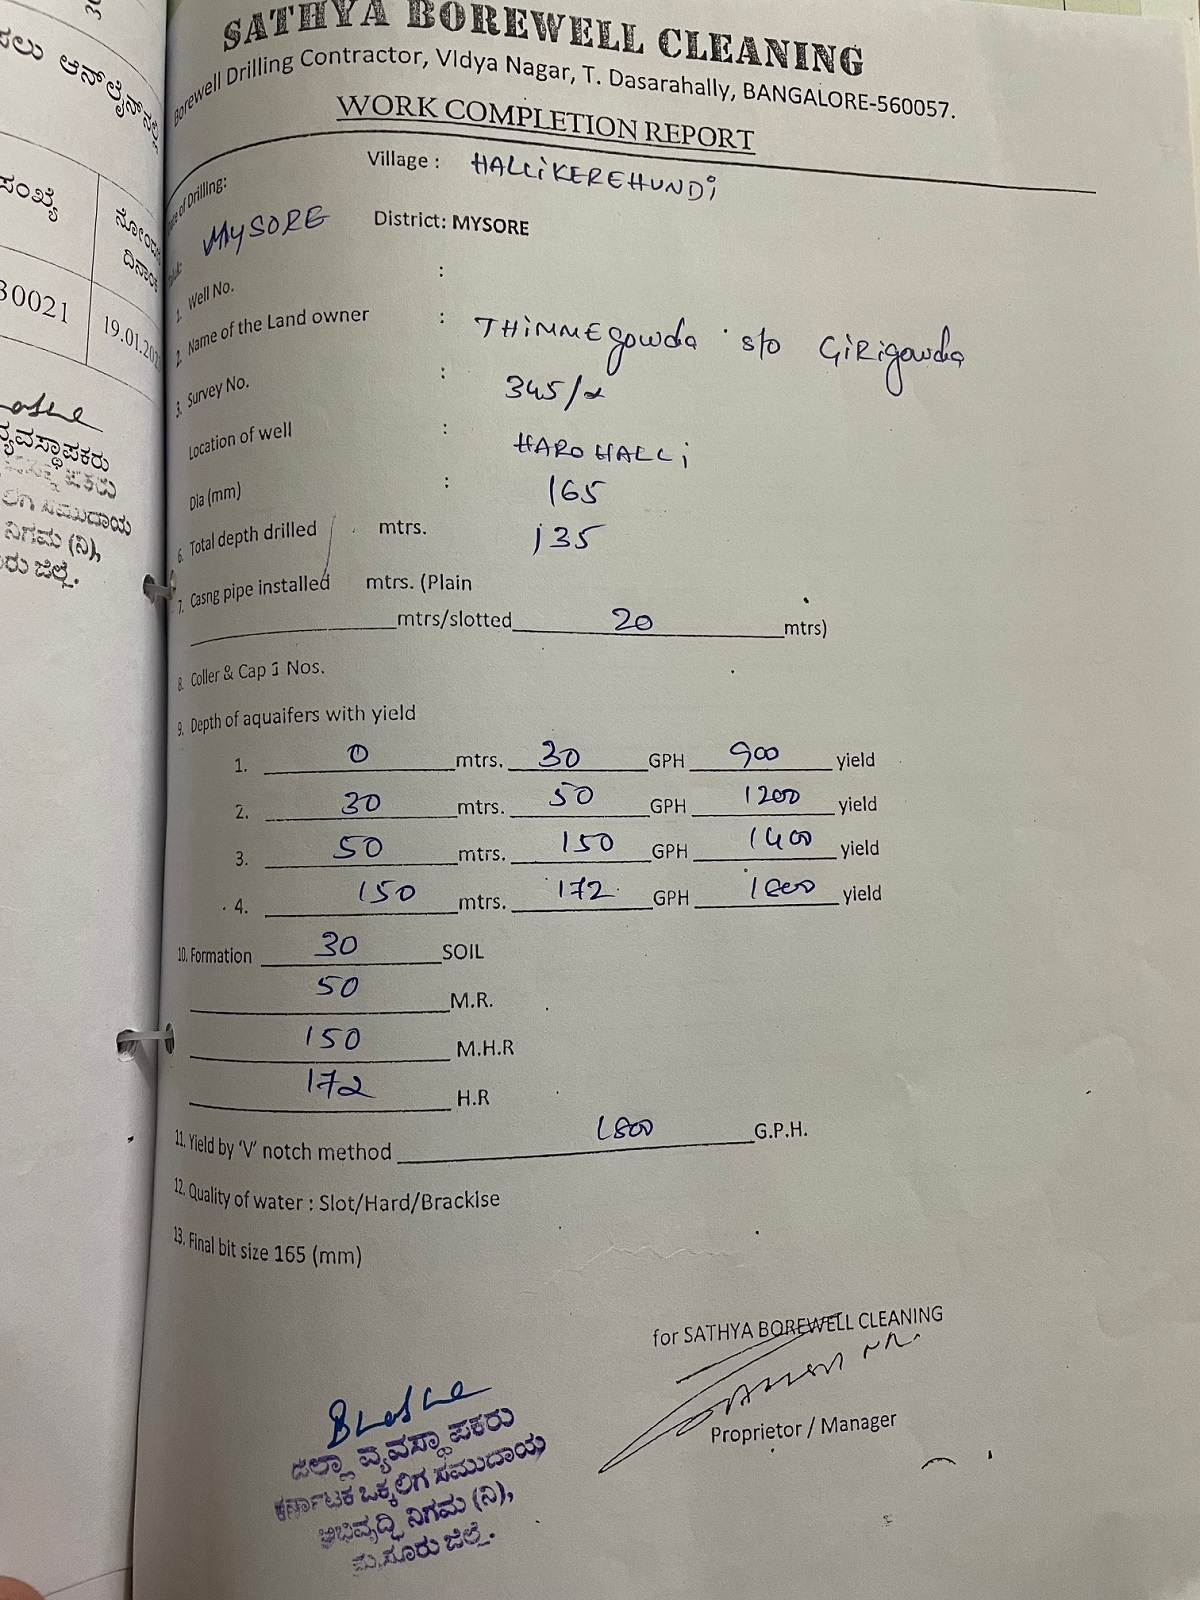 SATHYA BOREWELL CLEANING
Borewell Drilling Contractor, VIdya Nagar, T. Dasarahally, BANGALORE-560057.
WORK COMPLETION REPORT
of Drilling: Village : HALLiKEREHUNDi
MYSORE District: MYSORE
1. Well No. :
2. Name of the Land owner : THiMMEgowda s/o GiRigowda
3. Survey No. : 345/2
Location of well : HAROHALLi
Dia (mm) : 165
6. Total depth drilled mtrs. 135
7. Casng pipe installed mtrs. (Plain
mtrs/slotted 20 mtrs)
8. Coller & Cap 1 Nos.
9. Depth of aquaifers with yield
1. 0 mtrs. 30 GPH 900 yield
2. 30 mtrs. 50 GPH 1200 yield
3. 50 mtrs. 150 GPH 1400 yield
4. 150 mtrs. 172 GPH 1800 yield
10. Formation 30 SOIL
50 M.R.
150 M.H.R
172 H.R
11. Yield by 'V' notch method 1800 G.P.H.
12. Quality of water : Slot/Hard/Brackise
13. Final bit size 165 (mm)
for SATHYA BOREWELL CLEANING
Proprietor / Manager
ಜಿಲ್ಲಾ ವ್ಯವಸ್ಥಾಪಕರು
ಕರ್ನಾಟಕ ಒಕ್ಕಲಿಗ ಸಮುದಾಯ
ಅಭಿವೃದ್ಧಿ ನಿಗಮ (ನಿ),
ಮೈಸೂರು ಜಿಲ್ಲೆ.
ಆನ್‌ಲೈನ್‌ನಲ್ಲಿ
ಸಂಖ್ಯೆ
ದಿನಾಂಕ
30021
19.01.202
ವ್ಯವಸ್ಥಾಪಕರು
ಸಮುದಾಯ
ನಿಗಮ (ನಿ),
ಜಿಲ್ಲೆ.